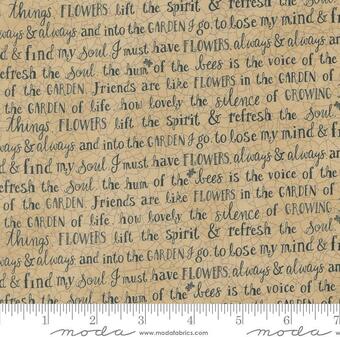 things FLOWERS lift the Spirit & refresh the Soul
always & always and into the GARDEN I go, to lose my mind &
d & find my Soul I must have FLOWERS, always & always and
refresh the Soul the hum of the bees is the voice of the
of the GARDEN. Friends are like FLOWERS in the GARDEN of
the GARDEN of life how lovely the silence of GROWING
things FLOWERS lift the Spirit & refresh the Soul
always & always and into the GARDEN I go, to lose my mind &
d & find my Soul I must have FLOWERS, always & always and
refresh the Soul the hum of the bees is the voice of the
of the GARDEN. Friends are like FLOWERS in the GARDEN of
the GARDEN of life how lovely the silence of GROWING
things FLOWERS lift the Spirit & refresh the Soul
always & always and into the GARDEN I go, to lose my mind &
d & find my Soul I must have FLOWERS, always & always and
refresh the Soul the hum of the bees is the voice of the
1 2 3 4 5 6 7
moda www.modafabrics.com moda